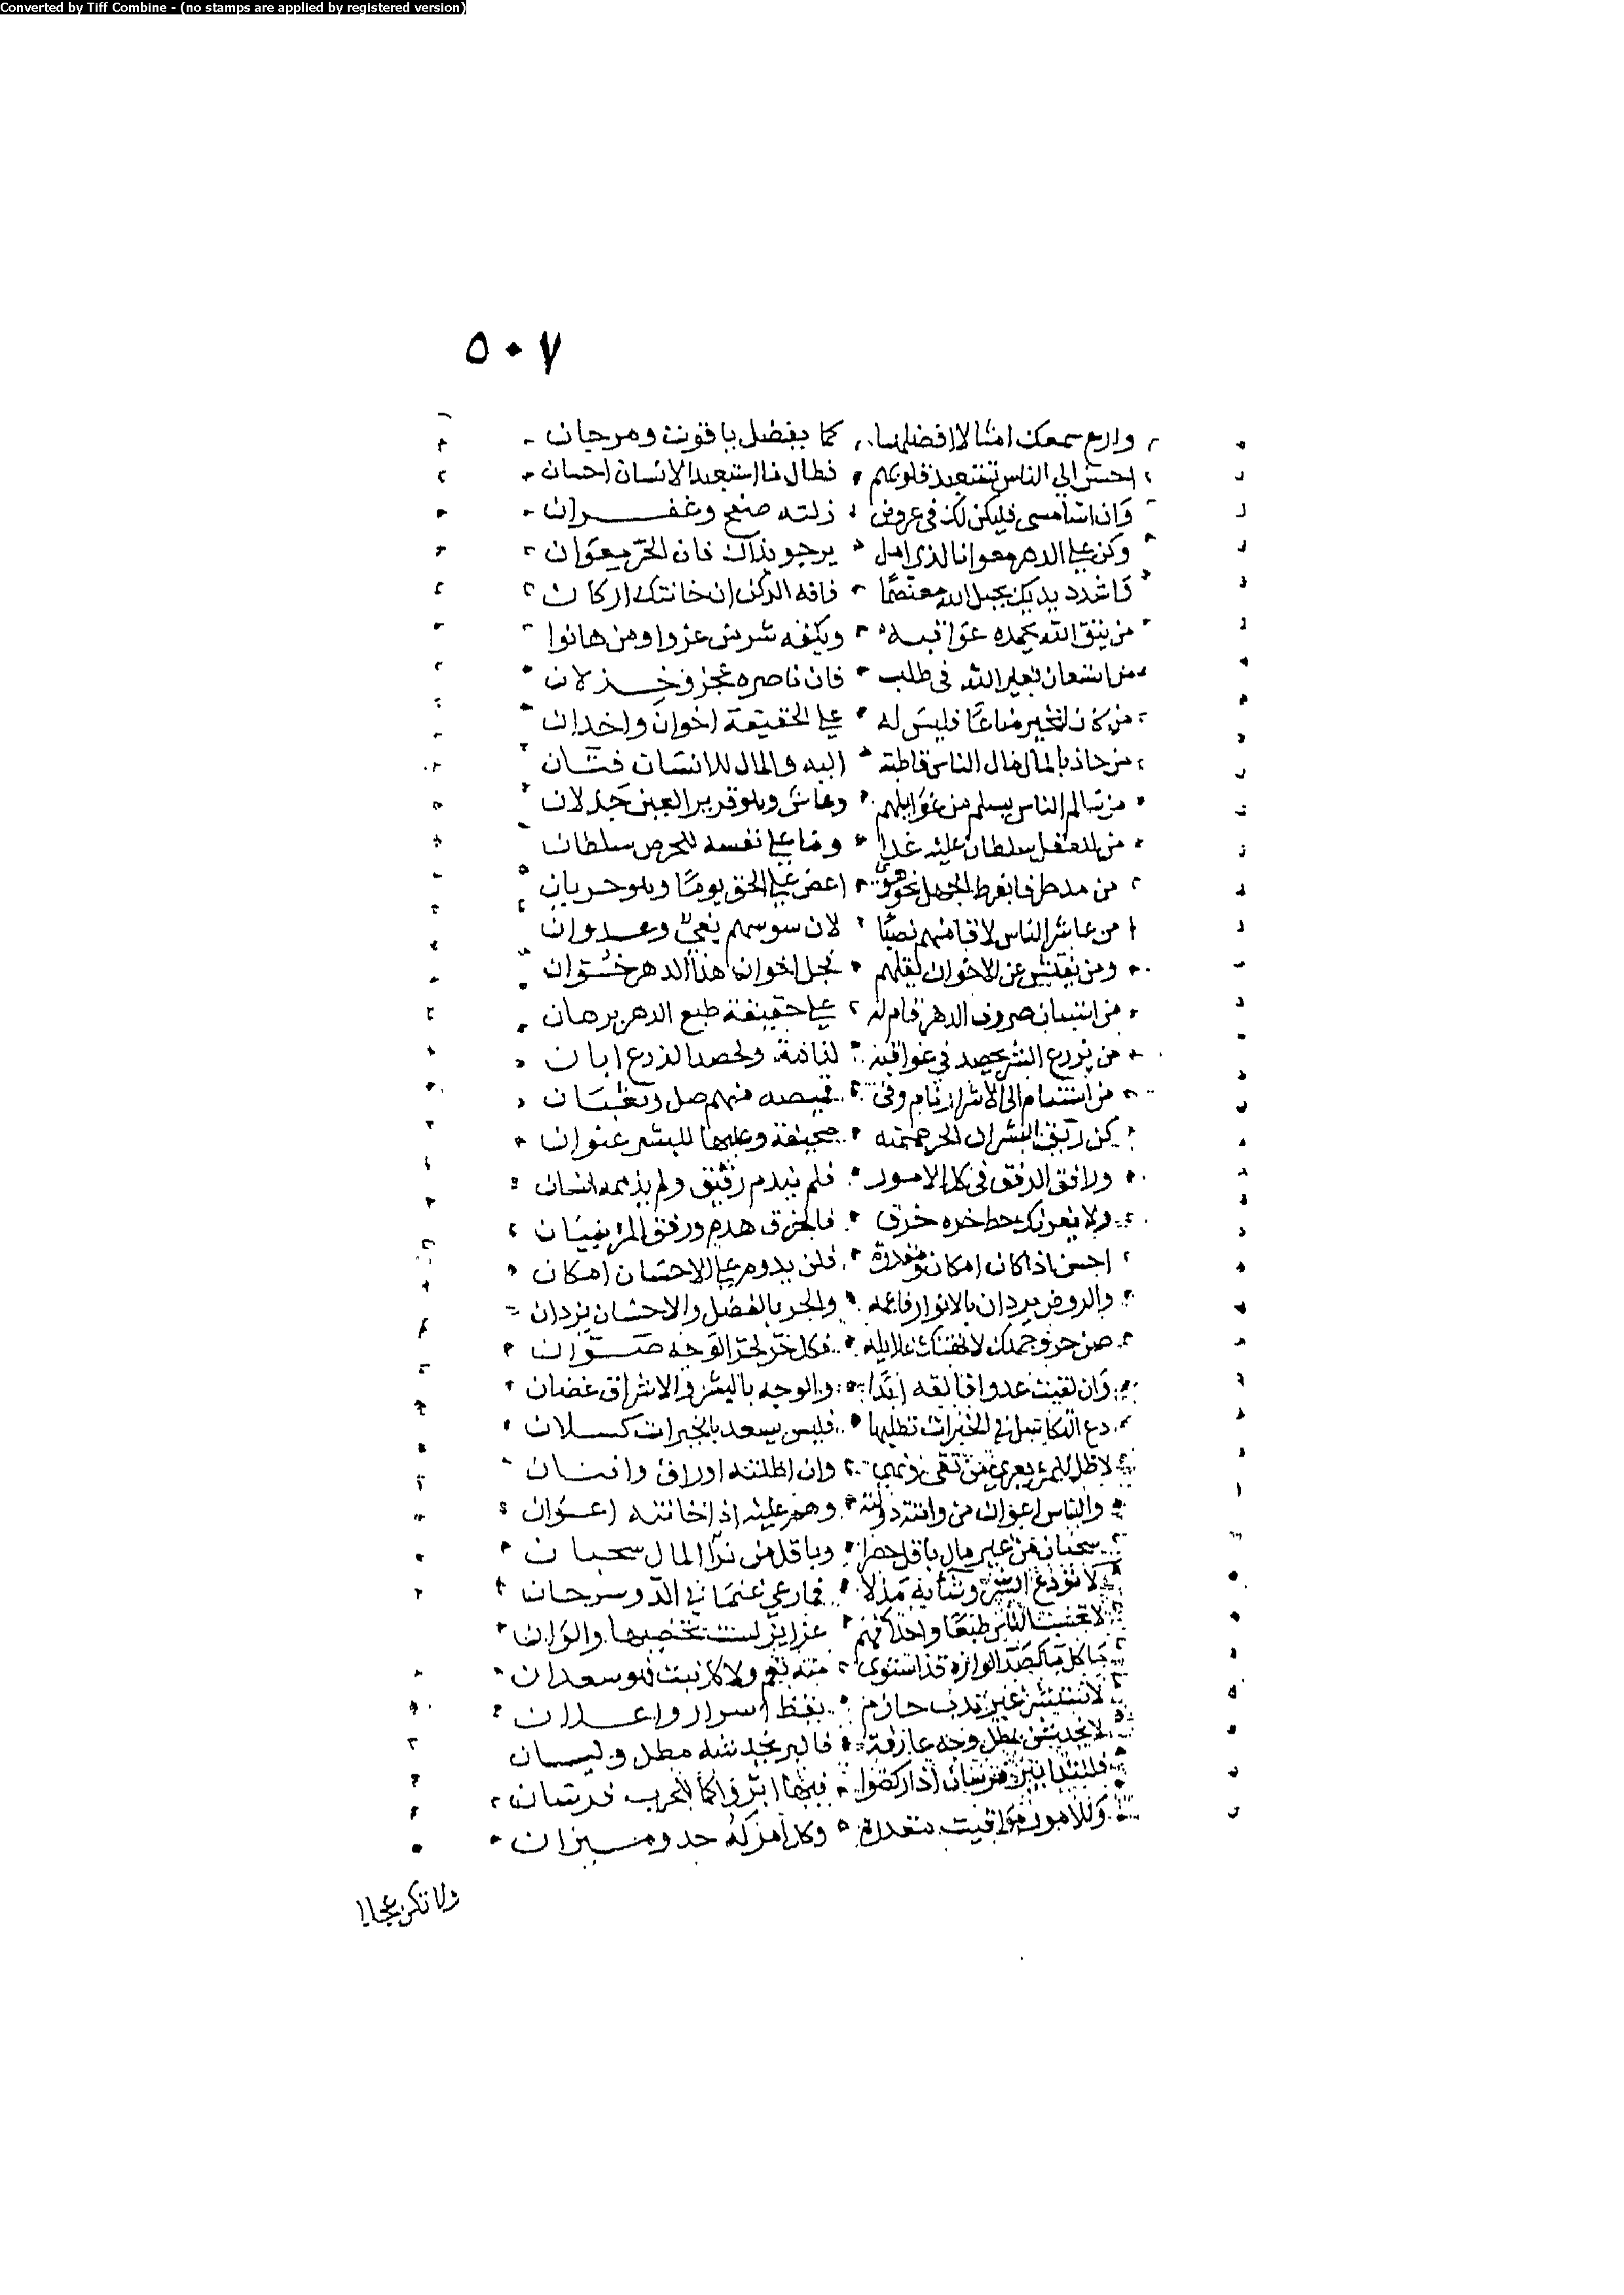 Converted by Tiff Combine - (no stamps are applied by registered version)
٥٠٧
وارع سمعك امثالا افضلها كما يفضل ياقوت ومرجان
احسن الي الناس تستعبد قلوبهم فطال ما استعبد الانسان احسان
وان اسا مسي فليكن لك في عروض زلته صفح وغفران
وكن علي الدهر معوانا لذي امل يرجو نداك فان الحر معوان
واشدد يديك بحبل الله معتصما فانه الركن ان خانتك اركان
من يتق الله يحمد عواقبه ويكفه شر من عزوا ومن هانوا
من استعان بغير الله في طلب فان ناصره عجز وخذلان
من كان للخير مناعا فليس له علي الحقيقة اخوان واخدان
من جاد بالمال مال الناس قاطبة اليه والمال للانسان فتان
من سالم الناس يسلم من غوايلهم وعاش وهو قرير العين جذلان
من للعقل سلطان عليه غدا وما علي نفسه للحرص سلطان
من مد طرفا بفرط الجهل نحو هوي اعضي علي الحق يوما وهو خزيان
من عاشر الناس لاقا منهم نصبا لان سوسهم بغي وعدوان
ومن يفتش عن الاخوان يقلهم فجل اخوان هذا الدهر خوان
من استبان صروف الدهر قام له علي حقيقة طبع الدهر برهان
من يزرع الشر يحصد في عواقبه ندامة ولحصد الزرع ابان
من استنام الي الاشرار نام وفي قميصه منهم صل وثعبان
كن ريق البشر ان الحر همته صحيفة وعليها للبشر عنوان
ورافق الرفق في كل الامور فلم يندم رفيق ولم يذممه انسان
ولا يغرنك حظ جره خرق فالخرق هدم ورفق المرء بنيان
احسن اذا كان امكان ومقدرة فلن يدوم علي الاحسان امكان
والروض يزدان بالانوار فاغمة والحر بالفضل والاحسان يزدان
صن حر وجهك لا تهتك غلايله فكل حر لحر الوجه صوان
وان لقيت عدوا فالقه ابدا والوجه بالبشر والاشراق غضان
دع التكاسل في الخيرات تطلبها فليس يسعد بالخيرات كسلان
لا ظل للمرء يعري من تقي ونهي وان اظلته اوراق وافنان
والناس اعوان من واتته دولته وهم عليه اذا خانته اعوان
سحبان من غير مال باقل حصرا وباقل في ثرا المال سحبان
لا تودع السر وشاء به مذلا فما رعي غنما في الدو سرحان
لا تحسب الناس طبعا واحدا فلهم غرايز لست تحصيها والوان
ما كل ماء كصداء لوارده منه نعم ولا كل نبت فهو سعدان
لا تستشر غير ندب حازم يقظ اسرار واعلان
لا تخدشن بمطل وجه عارفة فالبر يخدشه مطل وليان
فللتدابير فرسان اذا ركضوا فيها ابروا كما للحرب فرسان
وللامور مواقيت مقدرة وكل امر له حد وميزان
ولا تكن عجلا